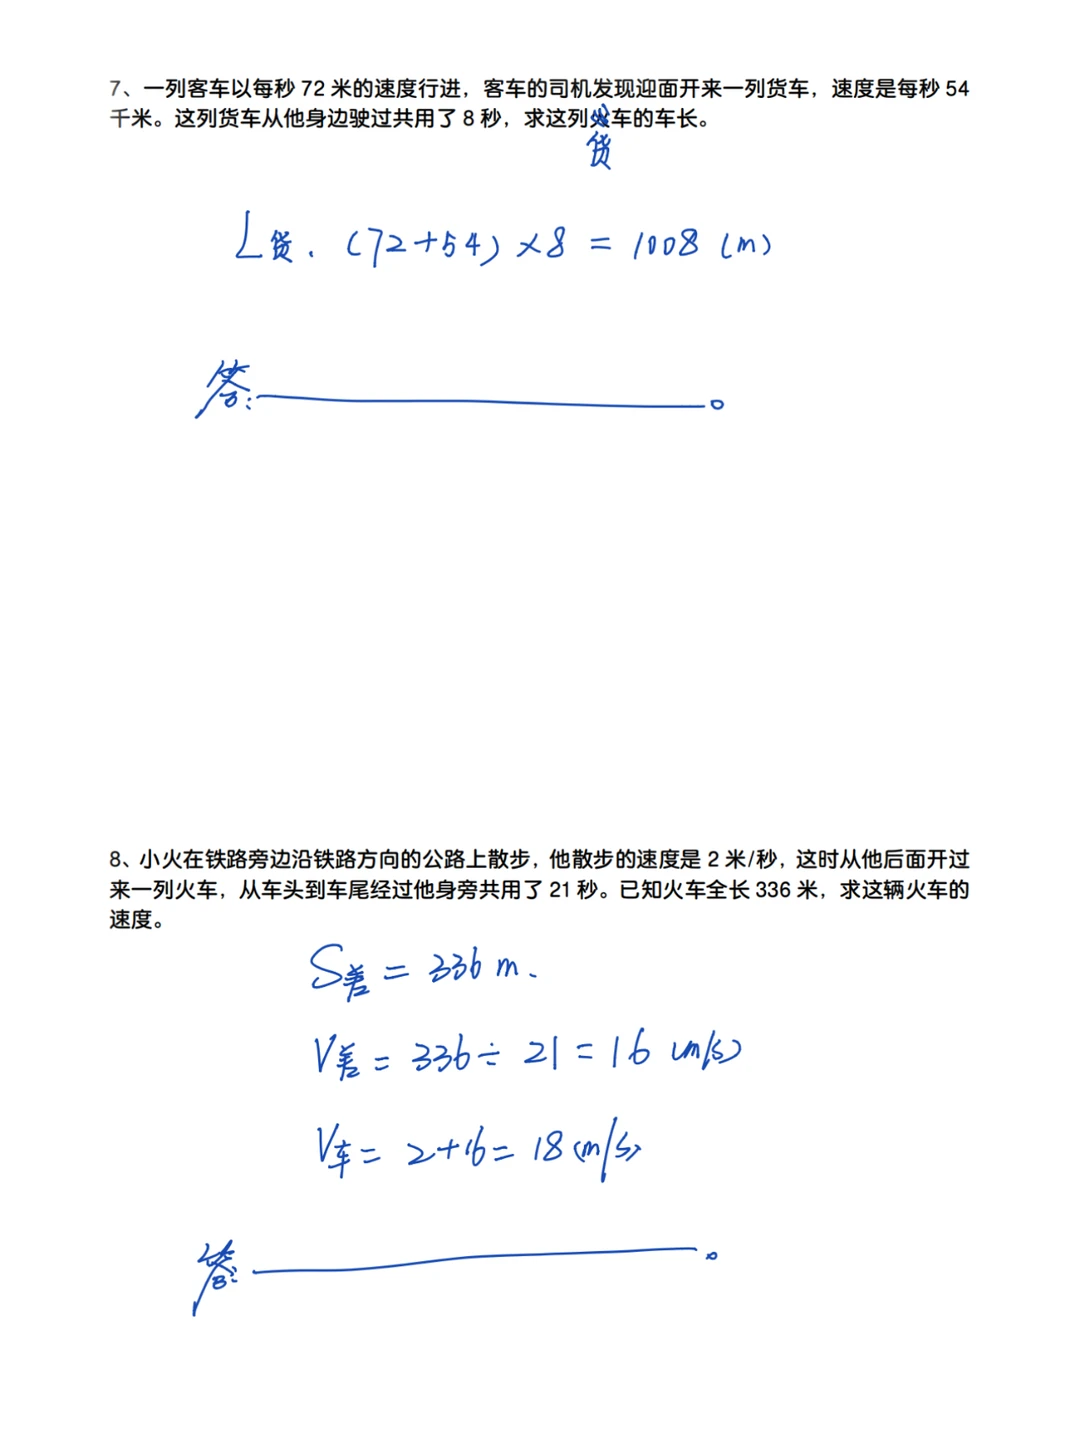 7、一列客车以每秒 72 米的速度行进，客车的司机发现迎面开来一列货车，速度是每秒 54
千米。这列货车从他身边驶过共用了 8 秒，求这列火车的车长。
货
L货. (72+54)×8 = 1008 (m)
答: 。
8、小火在铁路旁边沿铁路方向的公路上散步，他散步的速度是 2 米/秒，这时从他后面开过
来一列火车，从车头到车尾经过他身旁共用了 21 秒。已知火车全长 336 米，求这辆火车的
速度。
S差 = 336 m.
V差 = 336 ÷ 21 = 16 (m/s)
V车 = 2+16 = 18 (m/s)
答: 。